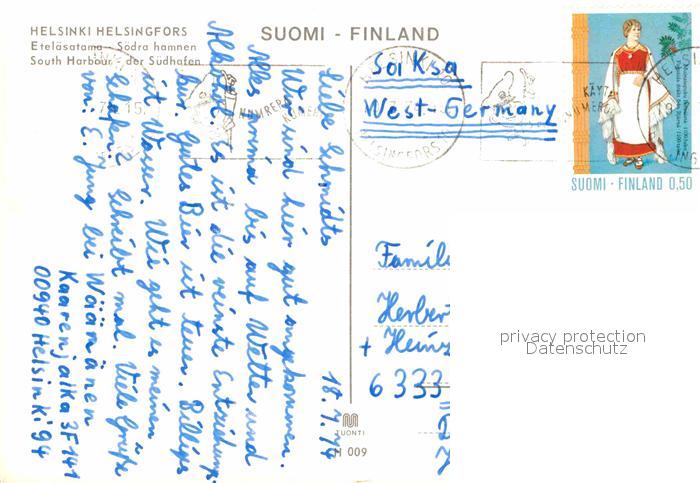 HELSINKI HELSINGFORS
Eteläsatama - Södra hamnen
South Harbour - der Südhafen
SUOMI - FINLAND
Soi Ksa
West-Germany
SUOMI - FINLAND 0,50
18.7.74
Liebe Schmidts
Wir sind hier gut angekommen.
Alles prima bis auf Wetter und
Alkohol. Es ist die reinste Entziehungs-
kur. Gutes Bier ist teuer. Billiges
mit Wasser. Wie geht es meinen
Schafen? Schreibt mal. Viele Grüße
von: E. Jung bei Wäänänen
Kaarenjalka 3F141
00940 Helsinki 94
Famil
Herber
+ Heinz
6333
privacy protection
Datenschutz
TUONTI
H 009